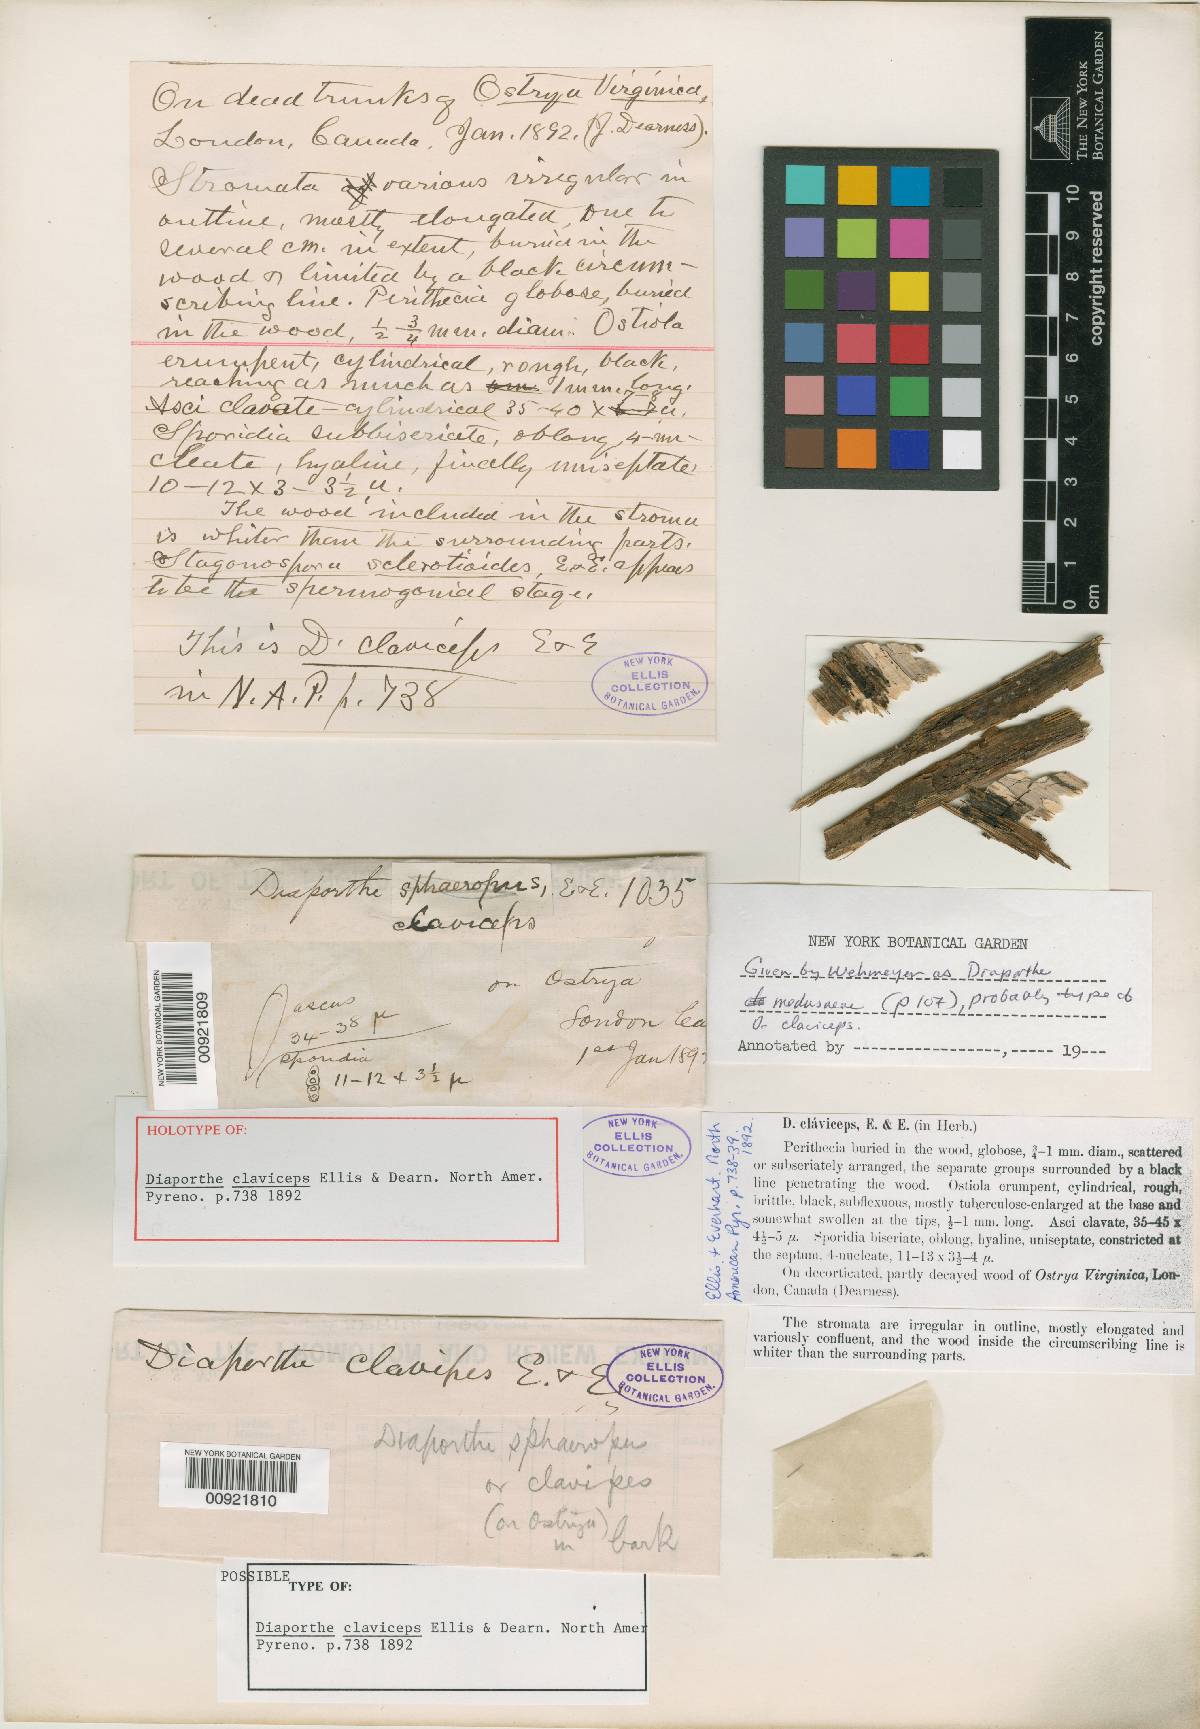 On dead trunks of Ostrya Virginica,
London, Canada, Jan. 1892. (J. Dearness).
Stromata various irregular in
outline, mostly elongated, one to
several cm. in extent, buried in the
wood & limited by a black circum-
scribing line. Perithecia globose, buried
in the wood, ½ ¾ mm. diam. Ostiola
erumpent, cylindrical, rough, black,
reaching as much as 1 mm. long.
Asci clavate-cylindrical 35-40 x µ.
Sporidia subbiseriate, oblong, 4-nu-
cleate, hyaline, finally uniseptate
10-12 x 3-3½ µ.
The wood included in the stroma
is whiter than the surrounding parts.
Stagonospora sclerotioides, E & E. appears
to be the spermogonial stage.
This is D. claviceps E & E
in N. A. P. p. 738
NEW YORK
ELLIS
COLLECTION
BOTANICAL GARDEN.
THE NEW YORK
BOTANICAL GARDEN
copyright reserved
0 1 2 3 4 5 6 7 8 9 10
cm
Diaporthe sphaeropus, E & E. 1035
claviceps
on Ostrya
London Ca
1st Jan 189
ascus
34-38 µ
sporidia
11-12 x 3½ µ
NEW YORK BOTANICAL GARDEN
00921809
NEW YORK BOTANICAL GARDEN
Given by Wehmeyer as Diaporthe
medusaea (p 107), probably type of
D. claviceps.
Annotated by ----------------, ----- 19---
HOLOTYPE OF:
Diaporthe claviceps Ellis & Dearn. North Amer.
Pyreno. p.738 1892
NEW YORK
ELLIS
COLLECTION
BOTANICAL GARDEN.
Ellis & Everhart. North
American Pyr. p. 738-39.
1892.
D. cláviceps, E. & E. (in Herb.)
Perithecia buried in the wood, globose, ¾-1 mm. diam., scattered
or subseriately arranged, the separate groups surrounded by a black
line penetrating the wood. Ostiola erumpent, cylindrical, rough,
brittle, black, subflexuous, mostly tuberculose-enlarged at the base and
somewhat swollen at the tips, ½-1 mm. long. Asci clavate, 35-45 x
4½-5 µ. Sporidia biseriate, oblong, hyaline, uniseptate, constricted at
the septum, 4-nucleate, 11-13 x 3½-4 µ.
On decorticated, partly decayed wood of Ostrya Virginica, Lon-
don, Canada (Dearness).
The stromata are irregular in outline, mostly elongated and
variously confluent, and the wood inside the circumscribing line is
whiter than the surrounding parts.
Diaporthe clavipes E. & E.
NEW YORK
ELLIS
COLLECTION
BOTANICAL GARDEN.
Diaporthe sphaeropus
or clavipes
(on Ostrya)
in bark
NEW YORK BOTANICAL GARDEN
00921810
POSSIBLE
TYPE OF:
Diaporthe claviceps Ellis & Dearn. North Amer
Pyreno. p.738 1892